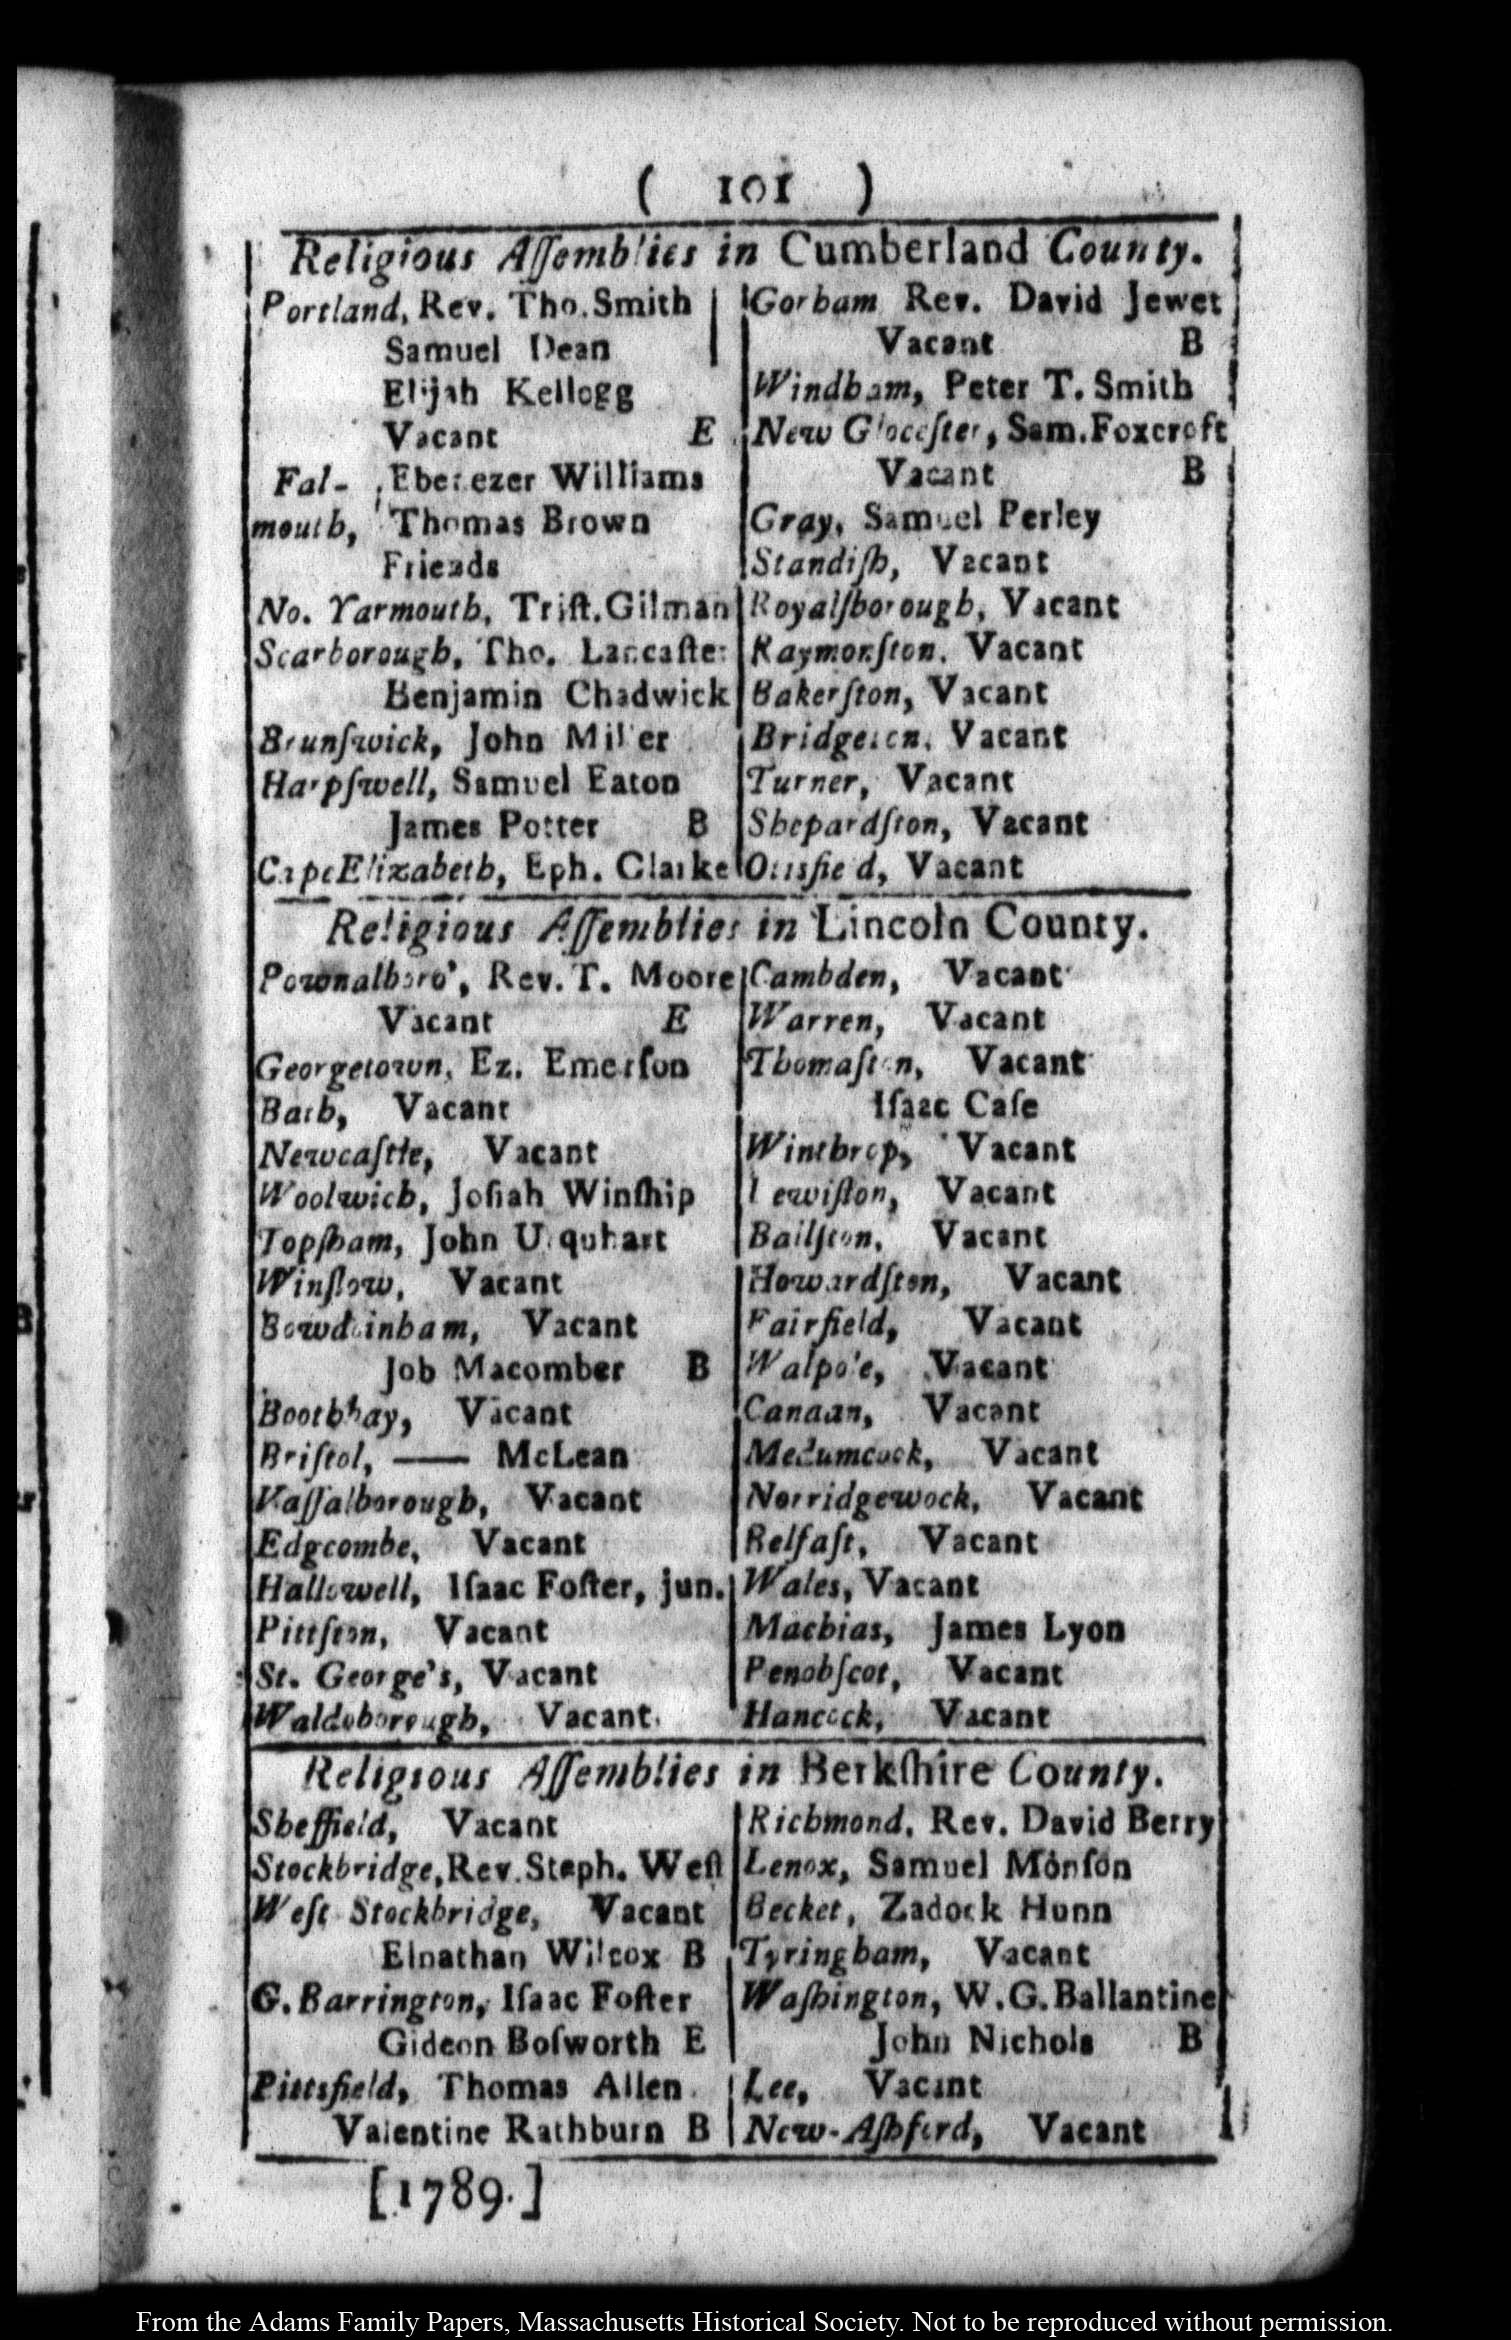 ( 101 )
Religious Aſſemblies in Cumberland County.
Portland, Rev. Tho. Smith
Samuel Dean
Elijah Kellogg
Vacant E
Fal- Ebenezer Williams
mouth, Thomas Brown
Friends
No. Yarmouth, Triſt. Gilman
Scarborough, Tho. Lancaſter
Benjamin Chadwick
Brunſwick, John Miller
Harpſwell, Samuel Eaton
James Potter B
Cape Elizabeth, Eph. Clarke
Gorham Rev. David Jewet
Vacant B
Windham, Peter T. Smith
New Gloceſter, Sam. Foxcroft
Vacant B
Gray, Samuel Perley
Standiſh, Vacant
Royalſborough, Vacant
Raymonſton, Vacant
Bakerſton, Vacant
Bridgeton, Vacant
Turner, Vacant
Shepardſton, Vacant
Otisfield, Vacant
Religious Aſſemblies in Lincoln County.
Pownalboro', Rev. T. Moore
Vacant E
Georgetown, Ez. Emerſon
Bath, Vacant
Newcaſtle, Vacant
Woolwich, Joſiah Winſhip
Topſham, John Urquhart
Winſlow, Vacant
Bowdoinham, Vacant
Job Macomber B
Boothbay, Vacant
Briſtol, —— McLean
Vaſſalborough, Vacant
Edgcombe, Vacant
Hallowell, Iſaac Foſter, jun.
Pittſton, Vacant
St. George's, Vacant
Waldoborough, Vacant
Cambden, Vacant
Warren, Vacant
Thomaſton, Vacant
Iſaac Caſe
Winthrop, Vacant
Lewiſton, Vacant
Bailſton, Vacant
Howardſton, Vacant
Fairfield, Vacant
Walpole, Vacant
Canaan, Vacant
Medumcock, Vacant
Norridgewock, Vacant
Belfaſt, Vacant
Wales, Vacant
Machias, James Lyon
Penobſcot, Vacant
Hancock, Vacant
Religious Aſſemblies in Berkſhire County.
Sheffield, Vacant
Stockbridge, Rev. Steph. Weſt
Weſt Stockbridge, Vacant
Elnathan Wilcox B
G. Barrington, Iſaac Foſter
Gideon Boſworth E
Pittsfield, Thomas Allen
Valentine Rathburn B
Richmond, Rev. David Berry
Lenox, Samuel Monſon
Becket, Zadock Hunn
Tyringham, Vacant
Waſhington, W. G. Ballantine
John Nichols B
Lee, Vacant
New-Aſhford, Vacant
[1789.]
From the Adams Family Papers, Massachusetts Historical Society. Not to be reproduced without permission.